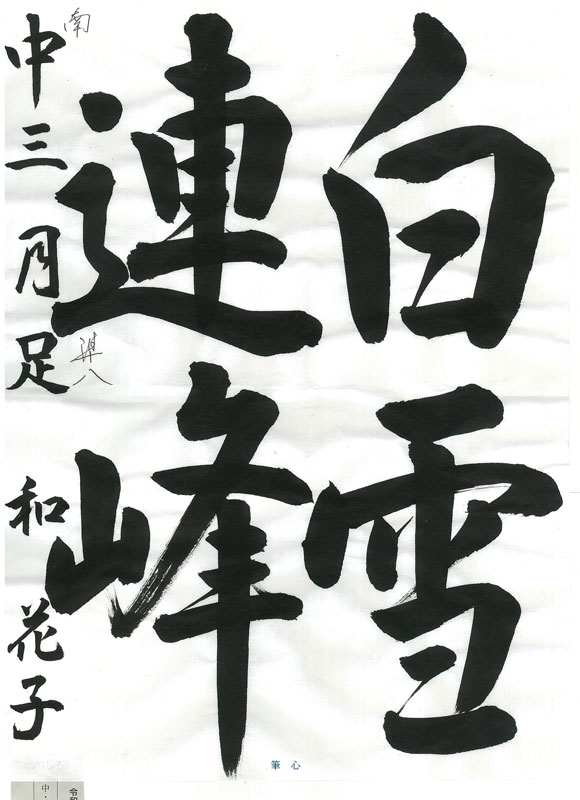 白雪
連峰
南
中三 月足 和花子
準八
筆 心
のりしろ
中・